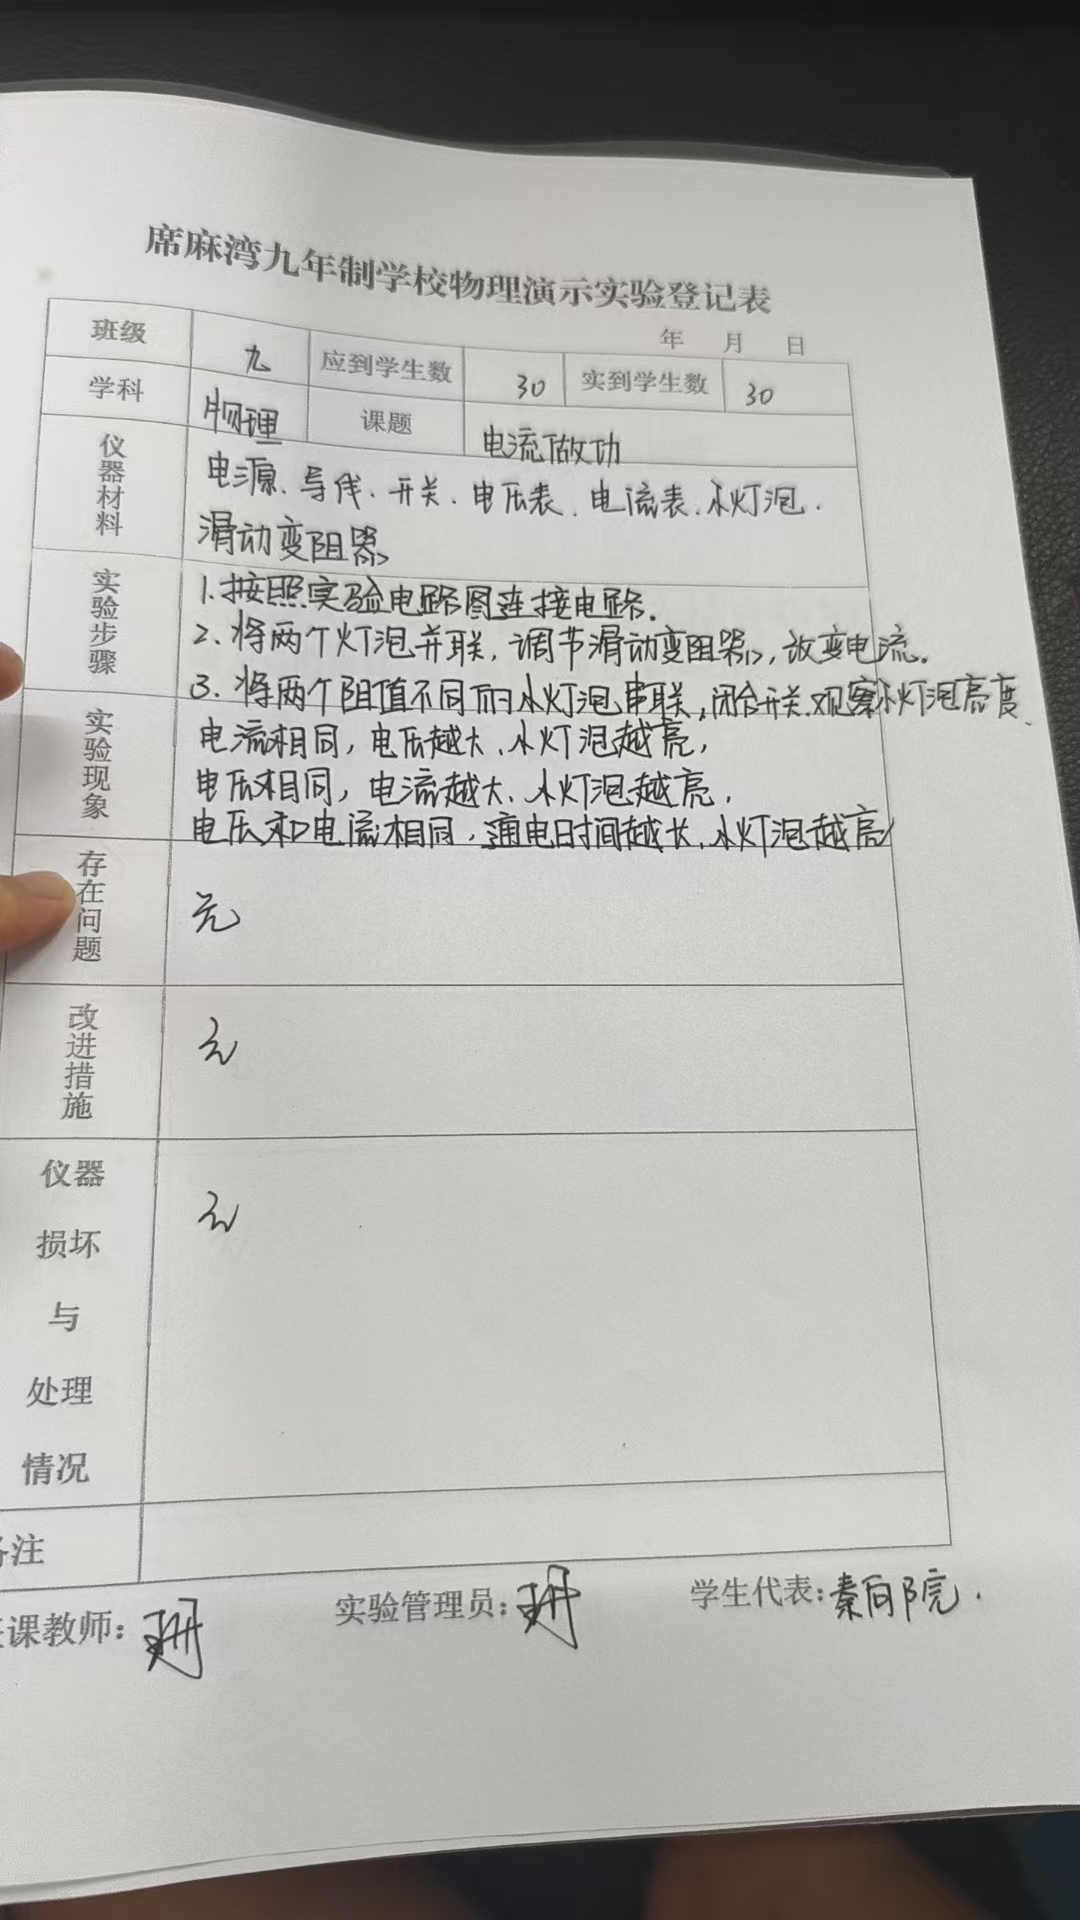 席麻湾九年制学校物理演示实验登记表
年 月 日
班级 九 应到学生数 30 实到学生数 30
学科 物理 课题 电流做功
仪器材料 电源、导线、开关、电压表、电流表、小灯泡、
滑动变阻器
实验步骤 1.按照实验电路图连接电路.
2.将两个灯泡并联,调节滑动变阻器,改变电流.
3.将两个阻值不同的小灯泡串联,闭合开关,观察小灯泡亮度.
实验现象 电流相同,电压越大、小灯泡越亮,
电压相同,电流越大、小灯泡越亮,
电压和电流相同,通电时间越长,小灯泡越亮
存在问题 无
改进措施 无
仪器
损坏
与
处理
情况
无
注
课教师: 实验管理员: 学生代表:秦向院.